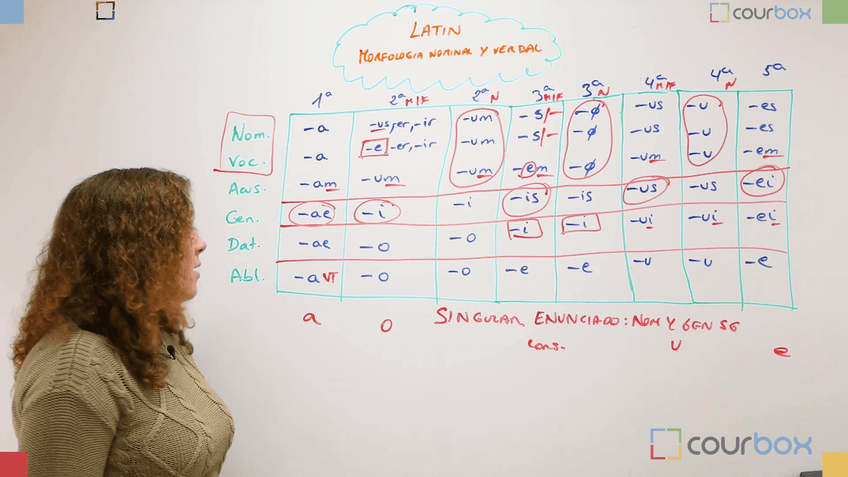 courbox
LATIN
MORFOLOGIA NOMINAL Y VERBAL
1ª 2ª M/F 2ª N 3ª M/F 3ª N 4ª M/F 4ª N 5ª
Nom. -a -us,-er,-ir -um -s/- -ø -us -u -es
Voc. -a -e -er,-ir -um -s/- -ø -us -u -es
Aus. -am -um -um -em -ø -um -u -em
Gen. -ae -i -i -is -is -us -us -ei
Dat. -ae -o -o -i -i -ui -ui -ei
Abl. -a VT -o -o -e -e -u -u -e
a o SINGULAR ENUNCIADO: NOM Y GEN SG
cons. u e
courbox